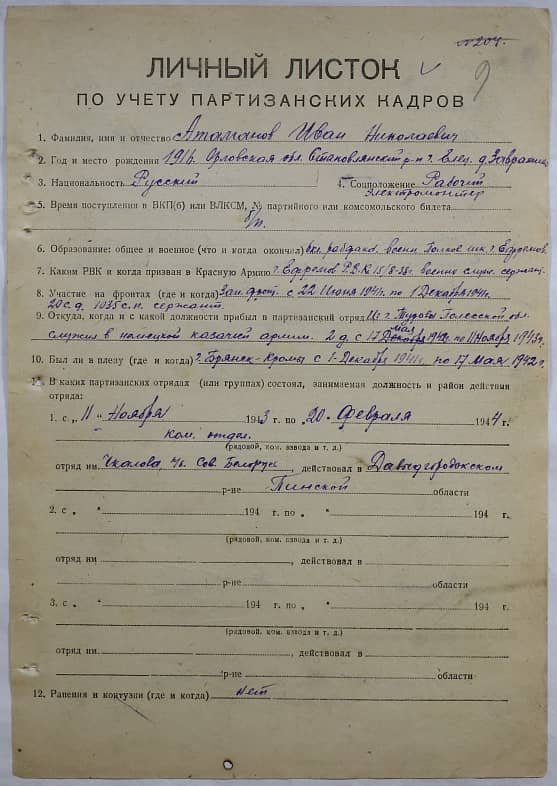 № 204.
9
ЛИЧНЫЙ ЛИСТОК
ПО УЧЕТУ ПАРТИЗАНСКИХ КАДРОВ
1. Фамилия, имя и отчество Атаманов Иван Николаевич
2. Год и место рождения 1916. Орловская обл. Становлянский р-н г. Елец. д.
3. Национальность Русский 4. Соцположение Рабочий
электромонтер
5. Время поступления в ВКП(б) или ВЛКСМ, № партийного или комсомольского билета
б/п.
6. Образование: общее и военное (что и когда окончил) рабфака. воен. Полков. шк. г. Ефремов.
7. Каким РВК и когда призван в Красную Армию г. Ефремов Р.В.К. 15/8-38г. военно служ. сержант.
8. Участие на фронтах (где и когда) Зап. фронт. с 22 Июня 1941г. по 1 Декабря 1941г.
20 с.д. 1035 с.п. сержант.
9. Откуда, когда и с какой должности прибыл в партизанский отряд Из г. Турова Полесской обл.
мая
служил в немецкой казачей армии. 2 д. с 17 Декабря 1942г. по 11 Ноября 1943г.
10. Был ли в плену (где и когда) г. Брянск-Кромы с 1-Декабря 1941г. по 17 Мая 1942г.
11. В каких партизанских отрядах (или группах) состоял, занимаемая должность и район действия
отряда:
1. с „ 11 " Ноября 1943 г. по „ 20 " Февраля 1944 г.
ком. отдел.
(рядовой, ком. взвода и т. д.)
отряд им. Чкалова, п/б. Сов. Белорус., действовал в Давыдгородокском
р-не Пинской области
2. с „ " 194 г. по „ " 194 г.
(рядовой, ком. взвода и т. д.)
отряд им , действовал в
р-не области
3. с „ " 194 г. по „ " 194 г.
(рядовой, ком. взвода и т. д.)
отряд им , действовал в
р-не области
12. Ранения и контузии (где и когда) нет